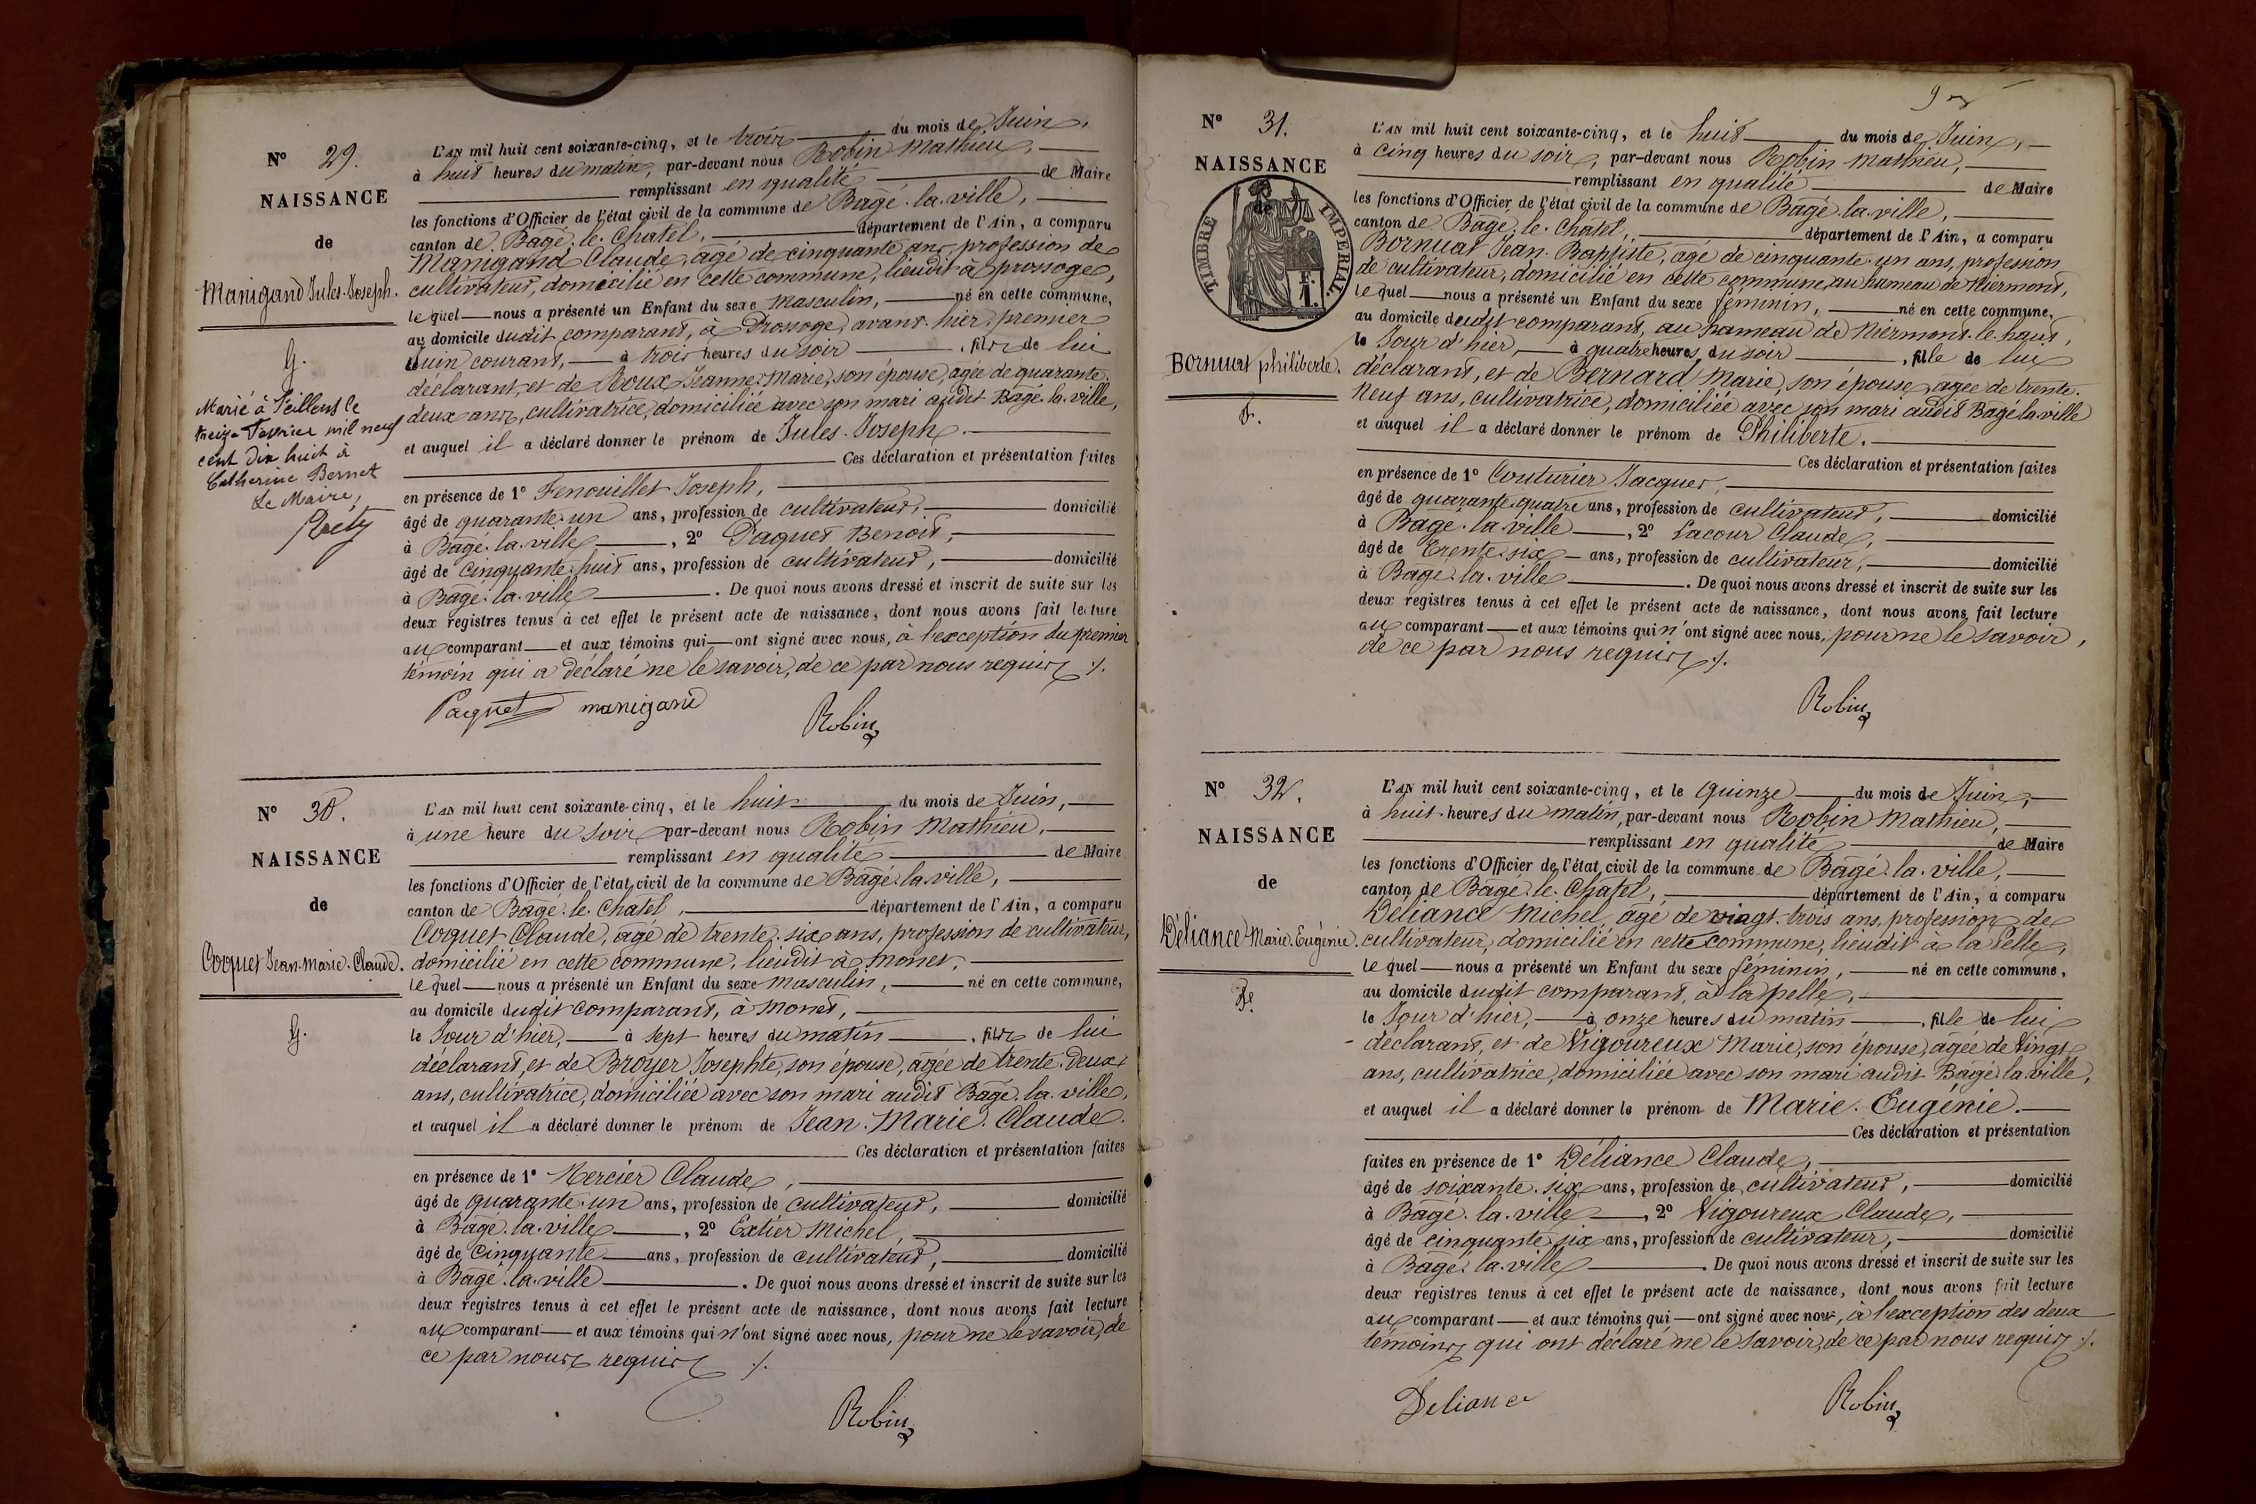 N° 29.
NAISSANCE
de
Manigand Jules-Joseph.
G.
Marié à Feillens le
treize Février mil neuf
cent dix huit à
Catherine Bernet
Le Maire,
L'AN mil huit cent soixante-cinq, et le trois du mois de Juin,
à huit heures du matin, par-devant nous Robin Mathieu,
remplissant en qualité de Maire
les fonctions d'Officier de l'état civil de la commune de Bagé-la-ville,
canton de Bagé-le-Chatel, département de l'Ain, a comparu
Manigand Claude, agé de cinquante ans, profession de
cultivateur, domicilié en cette commune, lieudit à prossoge,
lequel nous a présenté un Enfant du sexe masculin, né en cette commune,
au domicile dudit comparant, à Prossoge, avant-hier, premier
Juin courant, à trois heures du soir, fils de lui
déclarant, et de Roux Jeanne-Marie, son épouse, agée de quarante-
deux ans, cultivatrice, domiciliée avec son mari audit Bagé-la-ville,
et auquel il a déclaré donner le prénom de Jules-Joseph.
Ces déclaration et présentation faites
en présence de 1° Fenouillet Joseph,
âgé de quarante-un ans, profession de cultivateur, domicilié
à Bagé-la-ville, 2° Paquet Benoit,
âgé de cinquante-huit ans, profession de cultivateur, domicilié
à Bagé-la-ville. De quoi nous avons dressé et inscrit de suite sur les
deux registres tenus à cet effet le présent acte de naissance, dont nous avons fait lecture
au comparant et aux témoins qui ont signé avec nous, à l'exception du premier
témoin qui a déclaré ne le savoir, de ce par nous requis ./.
Paquet manigand Robin
N° 30.
NAISSANCE
de
Coquet Jean-Marie-Claude.
G.
L'AN mil huit cent soixante-cinq, et le huit du mois de Juin,
à une heure du soir par-devant nous Robin Mathieu,
remplissant en qualité de Maire
les fonctions d'Officier de l'état civil de la commune de Bagé-la-ville,
canton de Bagé-le-Chatel, département de l'Ain, a comparu
Coquet Claude, agé de trente-six ans, profession de cultivateur,
domicilié en cette commune, lieudit à Monet,
lequel nous a présenté un Enfant du sexe masculin, né en cette commune,
au domicile dudit comparant, à Monet,
le Jour d'hier, à sept heures du matin, fils de lui
déclarant, et de Broyer Josephte, son épouse, agée de trente-deux
ans, cultivatrice, domiciliée avec son mari audit Bagé-la-ville,
et auquel il a déclaré donner le prénom de Jean-Marie-Claude.
Ces déclaration et présentation faites
en présence de 1° Mercier Claude,
âgé de quarante-un ans, profession de cultivateur, domicilié
à Bagé-la-ville, 2° Extier Michel,
âgé de cinquante ans, profession de cultivateur, domicilié
à Bagé-la-ville. De quoi nous avons dressé et inscrit de suite sur les
deux registres tenus à cet effet le présent acte de naissance, dont nous avons fait lecture
au comparant et aux témoins qui n'ont signé avec nous, pour ne le savoir, de
ce par nous requis ./.
Robin
N° 31.
NAISSANCE
de
TIMBRE IMPERIAL
Bornuat philiberte.
F.
L'AN mil huit cent soixante-cinq, et le huit du mois de Juin,
à cinq heures du soir, par-devant nous Robin Mathieu,
remplissant en qualité de Maire
les fonctions d'Officier de l'état civil de la commune de Bagé-la-ville,
canton de Bagé-le-Chatel, département de l'Ain, a comparu
Bornuat Jean-Baptiste, agé de cinquante-un ans, profession
de cultivateur, domicilié en cette commune, au hameau de Niermont,
lequel nous a présenté un Enfant du sexe féminin, né en cette commune,
au domicile dudit comparant, au hameau de Niermont-le-haut,
le Jour d'hier, à quatre heures du soir, fille de lui
déclarant, et de Bernard Marie, son épouse, agée de trente-
neuf ans, cultivatrice, domiciliée avec son mari audit Bagé la ville
et auquel il a déclaré donner le prénom de Philiberte.
Ces déclaration et présentation faites
en présence de 1° Couturier Jacques,
âgé de quarante-quatre ans, profession de cultivateur, domicilié
à Bagé-la-ville, 2° Lacour Claude,
âgé de trente-six ans, profession de cultivateur, domicilié
à Bagé-la-ville. De quoi nous avons dressé et inscrit de suite sur les
deux registres tenus à cet effet le présent acte de naissance, dont nous avons fait lecture
au comparant et aux témoins qui n'ont signé avec nous, pour ne le savoir,
de ce par nous requis ./.
Robin
N° 32.
NAISSANCE
de
Déliance Marie-Eugénie.
F.
L'AN mil huit cent soixante-cinq, et le quinze du mois de Juin,
à huit heures du matin, par-devant nous Robin Mathieu,
remplissant en qualité de Maire
les fonctions d'Officier de l'état civil de la commune de Bagé-la-ville,
canton de Bagé-le-Chatel, département de l'Ain, a comparu
Déliance Michel, agé de vingt-trois ans, profession de
cultivateur, domicilié en cette commune, lieudit à la Pelle,
lequel nous a présenté un Enfant du sexe féminin, né en cette commune,
au domicile dudit comparant, à la pelle,
le Jour d'hier, à onze heures du matin, fille de lui
déclarant, et de Vigoureux Marie, son épouse, agée de vingt
ans, cultivatrice, domiciliée avec son mari audit Bagé-la-ville,
et auquel il a déclaré donner le prénom de Marie-Eugénie.
Ces déclaration et présentation
faites en présence de 1° Déliance Claude,
âgé de soixante-six ans, profession de cultivateur, domicilié
à Bagé-la-ville, 2° Vigoureux Claude,
âgé de cinquante-six ans, profession de cultivateur, domicilié
à Bagé-la-ville. De quoi nous avons dressé et inscrit de suite sur les
deux registres tenus à cet effet le présent acte de naissance, dont nous avons fait lecture
au comparant et aux témoins qui ont signé avec nous, à l'exception des deux
témoins qui ont déclaré ne le savoir, de ce par nous requis ./.
Deliance Robin